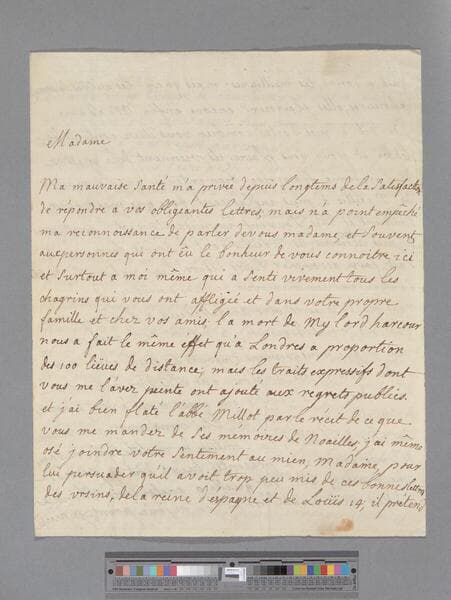 Madame
Ma mauvaise santé m'a privée depuis longtems de la Satisfact
de répondre a vos obligeantes lettres, mais n'a point empêché
ma reconnoissance de parler de vous madame, et Souvent
aux personnes qui ont êu le bonheur de vous connoitre ici
et Surtout a moi même qui a Senti vivement tous les
chagrins qui vous ont affligié et dans votre propre
famille et chez vos amis. la mort de Mylord harcour
nous a fait le même effet qu'a Londres a proportion
des 100 lieues de distance, mais les traits expressifs dont
vous me l'avéz peinte ont ajouté aux regrets publics.
et j'ai bien flaté l'abbé Millot par le récit de ce que
vous me mandez de Ses mémoires de Noailles, j'ai même
osé joindre votre Sentement au mien, Madame, pour
lui persuader qu'il avoit trop peu mis de ces bonnes lettres
des ursins, de la reine d'espagne et de Loüis 14; il prétend